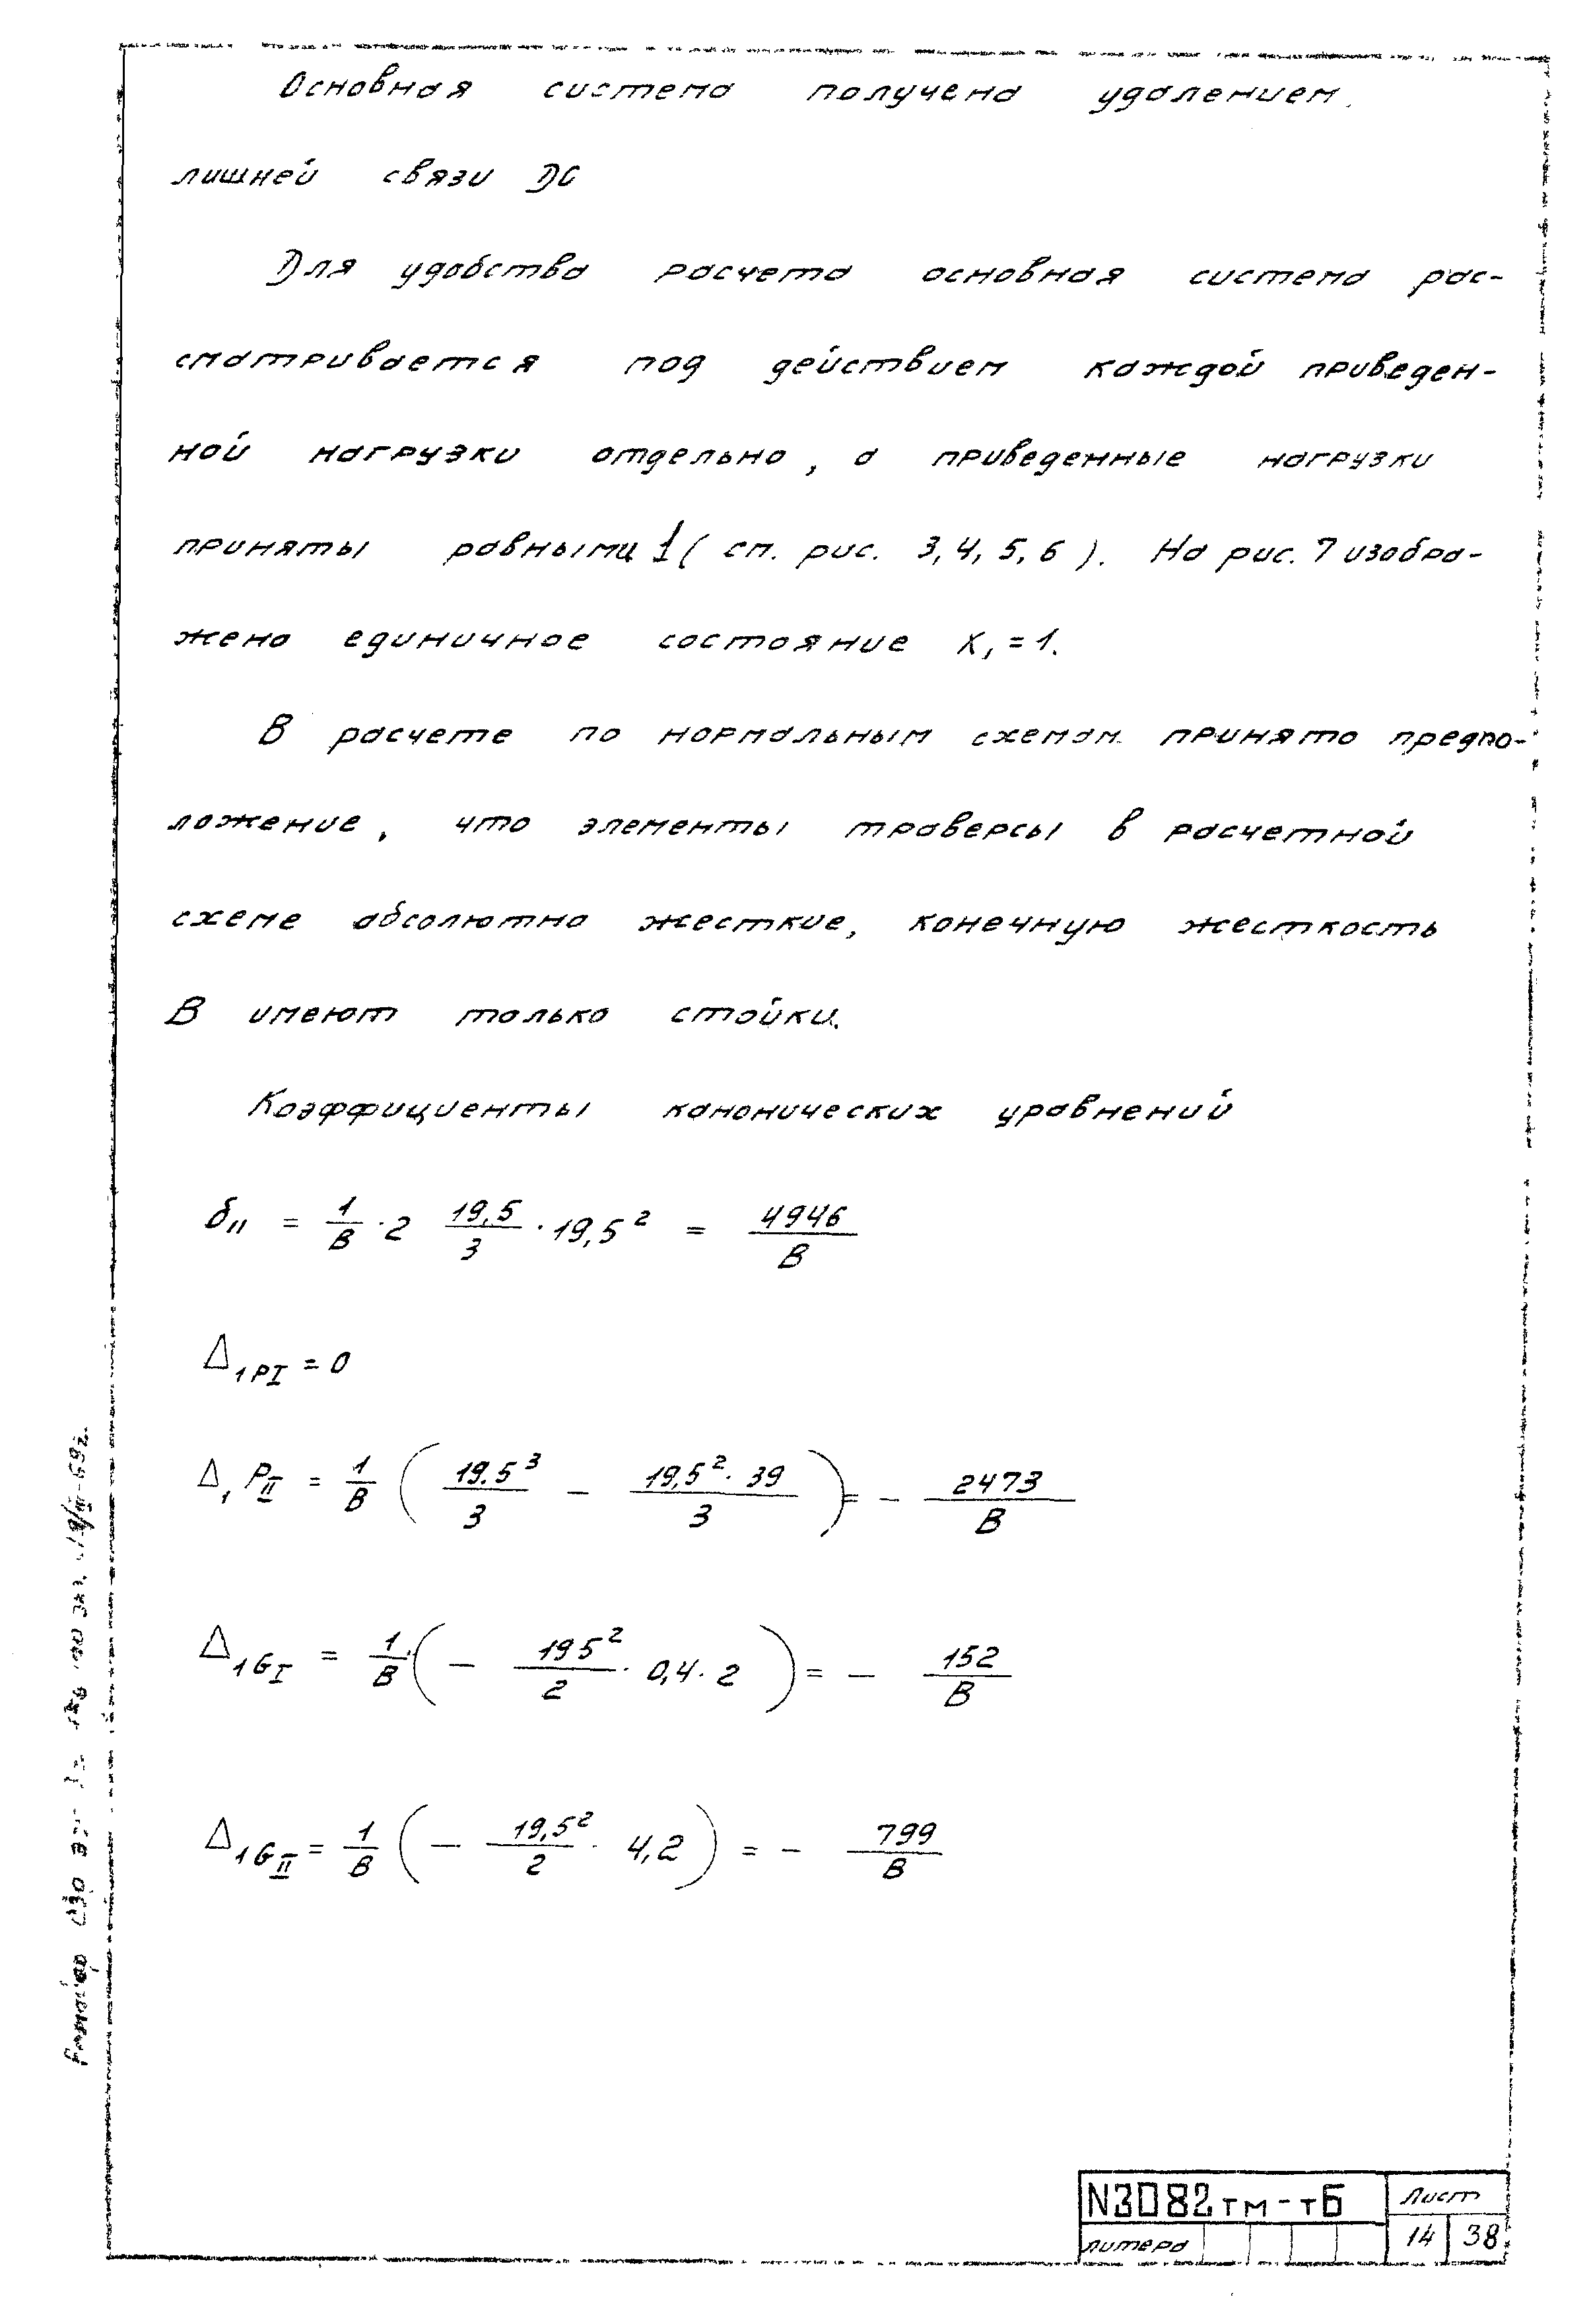 Основная система получена удалением
лишней связи DC
Для удобства расчета основная система рас-
сматривается под действием каждой приведен-
ной нагрузки отдельно, а приведенные нагрузки
приняты равными 1 ( см. рис. 3, 4, 5, 6 ). На рис. 7 изобра-
жено единичное состояние X₁ = 1.
В расчете по нормальным схемам принято предпо-
ложение, что элементы траверсы в расчетной
схеме абсолютно жесткие, конечную жесткость
В имеют только стойки.
Коэффициенты канонических уравнений
δ₁₁ = 1/B · 2 19,5/3 · 19,5² = 4946/B
Δ₁PI = 0
Δ₁PII = 1/B ( 19.5³/3 − 19,5² · 39/3 ) = − 2473/B
Δ₁GI = 1/B ( − 195²/2 · 0,4 · 2 ) = − 152/B
Δ₁GII = 1/B ( − 19,5²/2 · 4,2 ) = − 799/B
N3082тм-тБ
Лист
литера
14 38